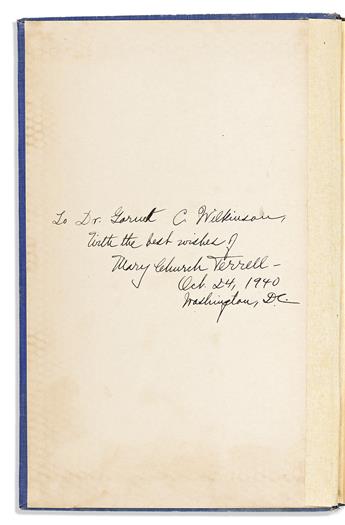 To Dr. Garnet C. Wilkinson,
With the best wishes of
Mary Church Terrell—
Oct. 24, 1940
Washington, D.C.